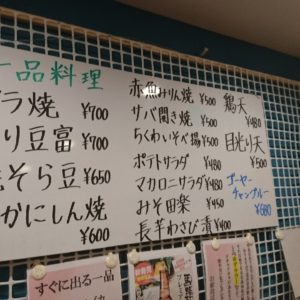 一品料理
ラ焼 ¥700
り豆富 ¥700
そら豆 ¥650
かにしん焼
¥600
赤魚みりん焼 ¥500
サバ開き焼 ¥500
ちくわいそべ揚 ¥500
ポテトサラダ ¥480
マカロニサラダ ¥480
みそ田楽 ¥450
長芋わさび漬 ¥400
鶏天
¥480
目光り天
¥500
ゴーヤー
チャンプルー
¥680
すぐに出る一品